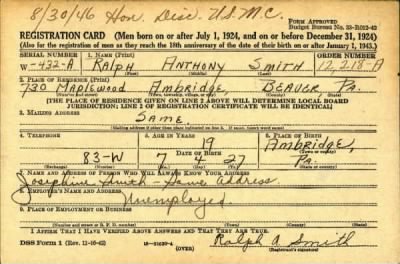 8/30/46 Hon. Disc. U.S.M.C.
FORM APPROVED
Budget Bureau No. 33-R012-42
REGISTRATION CARD (Men born on or after July 1, 1924, and on or before December 31, 1924)
(Also for the registration of men as they reach the 18th anniversary of the date of their birth on or after January 1, 1943.)
SERIAL NUMBER 1. NAME (Print) ORDER NUMBER
W-432-A RALPH ANTHONY SMITH 12,218-A
2. PLACE OF RESIDENCE (Print)
730 MAPLEWOOD AMBRIDGE, BEAVER, PA.
(Number and street) (Town, township, village, or city) (County) (State)
[THE PLACE OF RESIDENCE GIVEN ON LINE 2 ABOVE WILL DETERMINE LOCAL BOARD
JURISDICTION; LINE 2 OF REGISTRATION CERTIFICATE WILL BE IDENTICAL]
3. MAILING ADDRESS
SAME.
[Mailing address if other than place indicated on line 2. If same, insert word same]
4. TELEPHONE 5. AGE IN YEARS 6. PLACE OF BIRTH
19 AMBRIDGE,
DATE OF BIRTH (Town or county)
83-W 7 4 27 PA.
(Exchange) (Number) (Mo.) (Day) (Yr.) (State or country)
7. NAME AND ADDRESS OF PERSON WHO WILL ALWAYS KNOW YOUR ADDRESS
Josephine Smith - Same Address
8. EMPLOYER'S NAME AND ADDRESS
Unemployed.
9. PLACE OF EMPLOYMENT OR BUSINESS
(Number and street or R. F. D. number) (Town) (County) (State)
I AFFIRM THAT I HAVE VERIFIED ABOVE ANSWERS AND THAT THEY ARE TRUE.
DSS Form 1 (Rev. 11-16-42) (OVER) Ralph A Smith
(Registrant's signature)